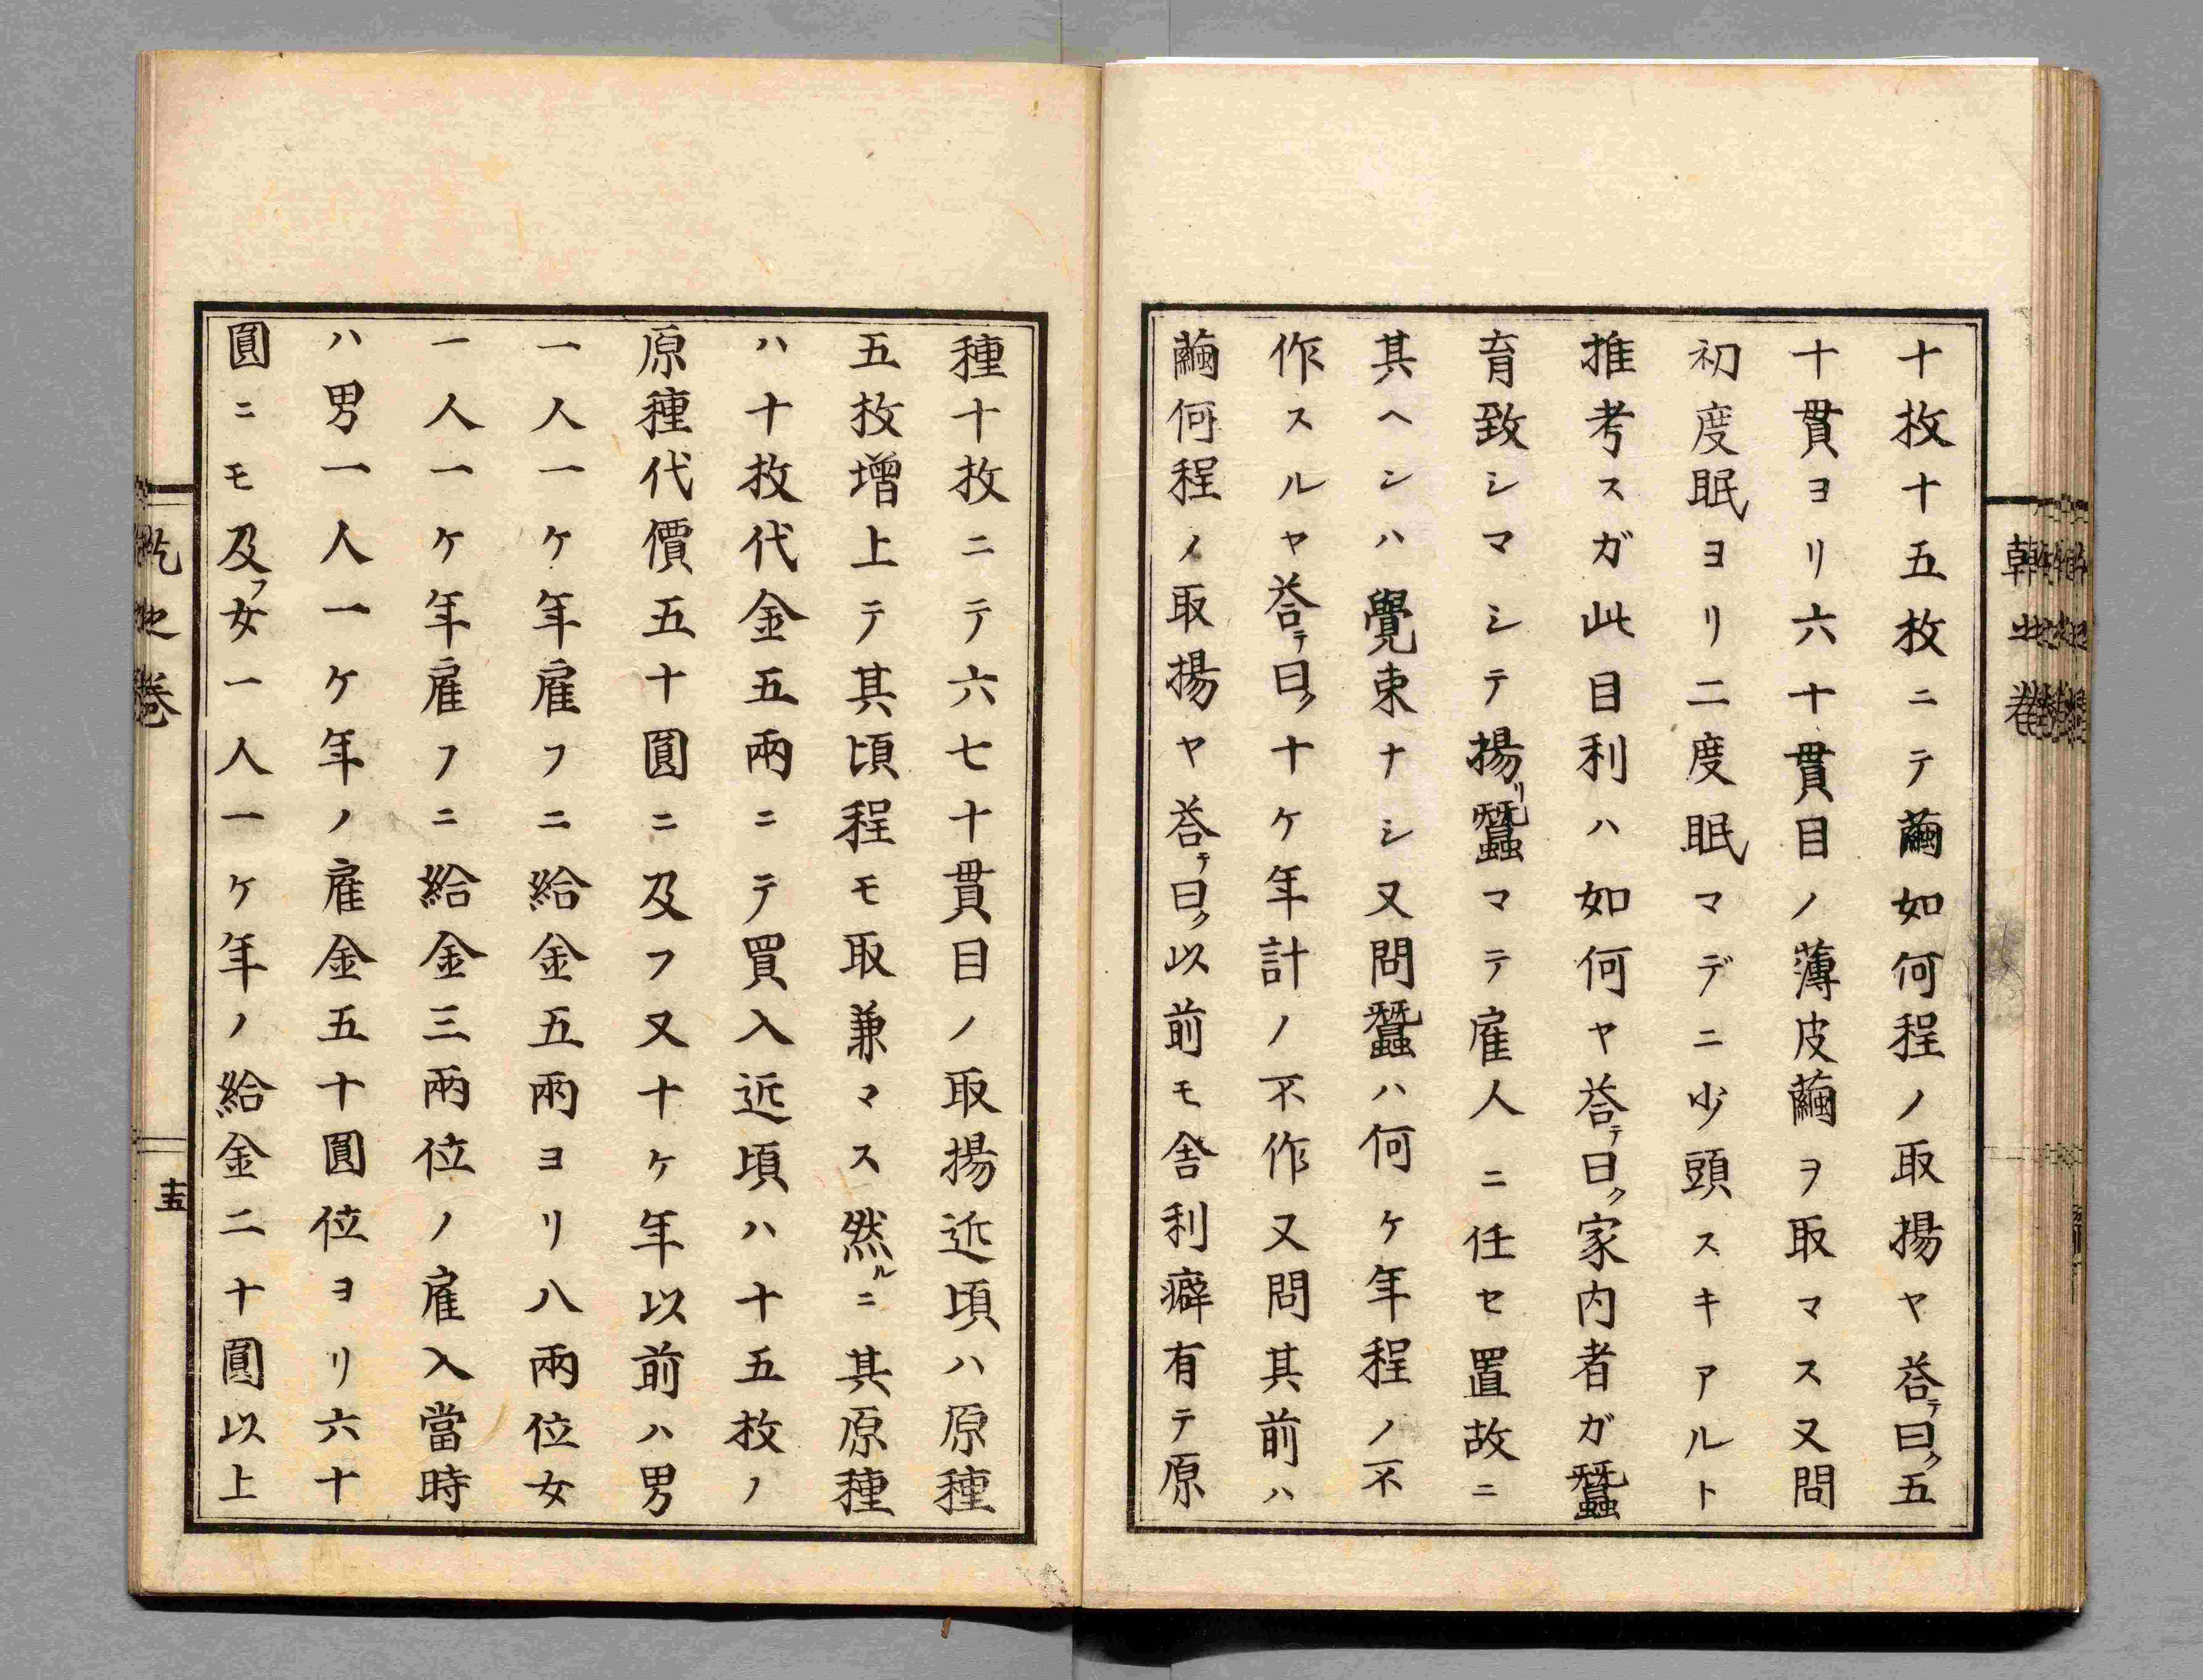 十枚十五枚ニテ繭如何程ノ取揚ヤ答テ曰ク五
十貫ヨリ六十貫目ノ薄皮繭ヲ取マス又問
初度眠ヨリ二度眠マデニ少頭スキアルト
推考スガ此目利ハ如何ヤ答テ曰ク家内者ガ蠶
育致シマシテ揚リ蠶マテ雇人ニ任セ置故ニ
其ヘンハ覺束ナシ又問蠶ハ何ケ年程ノ不
作スルヤ答テ曰ク十ケ年計ノ不作又問其前ハ
繭何程ノ取揚ヤ答テ曰ク以前モ舎利癖有テ原
種十枚ニテ六七十貫目ノ取揚近頃ハ原種
五枚增上テ其頃程モ取兼マス然ルニ其原種
ハ十枚代金五兩ニテ買入近頃ハ十五枚ノ
原種代價五十圓ニ及フ又十ケ年以前ハ男
一人一ケ年雇フニ給金五兩ヨリ八兩位女
一人一ケ年雇フニ給金三兩位ノ雇入當時
ハ男一人一ケ年ノ雇金五十圓位ヨリ六十
圓ニモ及フ女一人一ケ年ノ給金二十圓以上
乾之卷
十五